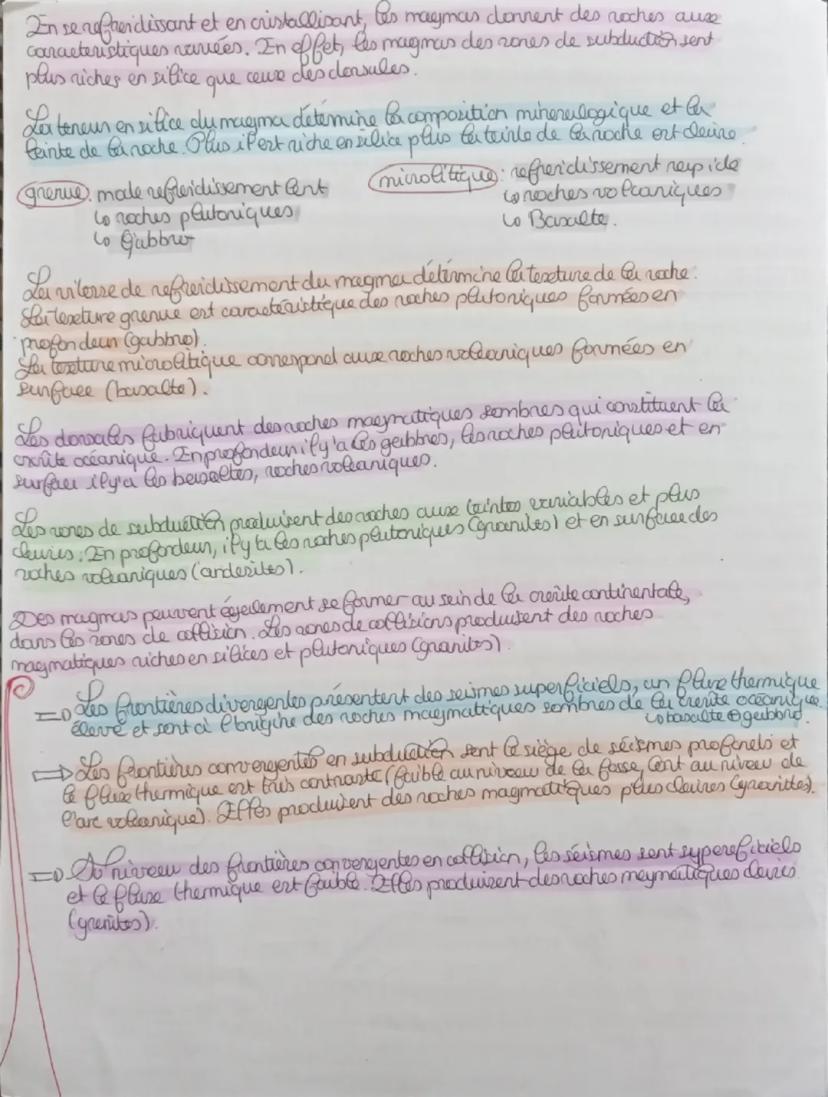 En se refroidissant et en cristallisant, les magmas donnent des roches aux
caractéristiques variées. En effet, les magmas des zones de subduction sont
plus riches en silice que ceux des dorsales.
La teneur en silice du magma détermine la composition minéralogique et la
teinte de la roche. Plus il est riche en silice plus la teinte de la roche est claire.
grenue : mode refroidissement lent
↳ roches plutoniques
↳ Gabbro
microlitique : refroidissement rapide
↳ roches volcaniques
↳ Basalte.
La vitesse de refroidissement du magma détermine la texture de la roche.
La texture grenue est caractéristique des roches plutoniques formées en
profondeur (gabbro).
La texture microlitique correspond aux roches volcaniques formées en
surface (basalte).
Les dorsales fabriquent des roches magmatiques sombres qui constituent la
croûte océanique. En profondeur il y'a les gabbros, les roches plutoniques et en
surface il y'a les basaltes, roches volcaniques.
Les zones de subduction produisent des roches aux teintes variables et plus
claires. En profondeur, il y'a les roches plutoniques (granites) et en surface des
roches volcaniques (andésites).
Des magmas peuvent également se former au sein de la croûte continentale,
dans les zones de collision. Les zones de collisions produisent des roches
magmatiques riches en silices et plutoniques (granites).
⇒ Les frontières divergentes présentent des séismes superficiels, un flux thermique
élevé et sont à l'origine des roches magmatiques sombres de la croûte océanique
↳ basalte ⊕ gabbro.
⇒ Les frontières convergentes en subduction sont le siège de séismes profonds et
le flux thermique est très contrasté (faible au niveau de la fosse, fort au niveau de
l'arc volcanique). Elles produisent des roches magmatiques plus claires (granites).
⇒ Au niveau des frontières convergentes en collision, les séismes sont superficiels
et le flux thermique est faible. Elles produisent des roches magmatiques claires
(granites).